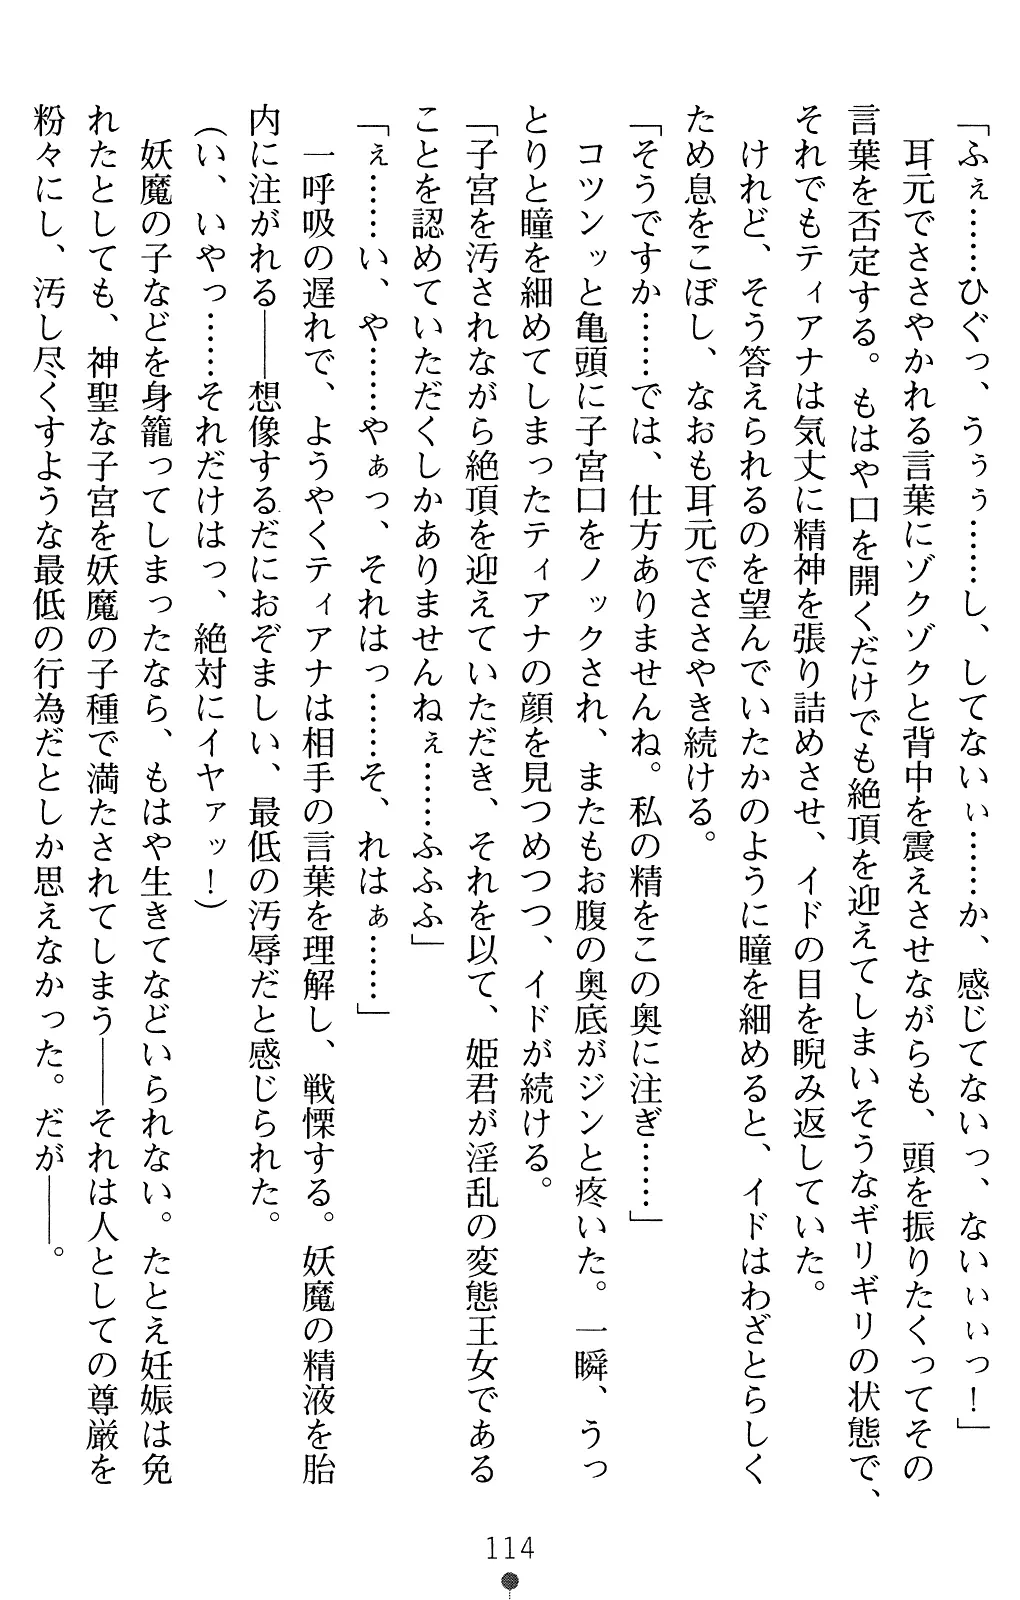 「ふぇ……ひぐっ、うぅぅ……し、してないぃ……か、感じてないっ、ないぃぃっ！」
　耳元でささやかれる言葉にゾクゾクと背中を震えさせながらも、頭を振りたくってその
言葉を否定する。もはや口を開くだけでも絶頂を迎えてしまいそうなギリギリの状態で、
それでもティアナは気丈に精神を張り詰めさせ、イドの目を睨み返していた。
　けれど、そう答えられるのを望んでいたかのように瞳を細めると、イドはわざとらしく
ため息をこぼし、なおも耳元でささやき続ける。
「そうですか……では、仕方ありませんね。私の精をこの奥に注ぎ……」
　コツンッと亀頭に子宮口をノックされ、またもお腹の奥底がジンと疼いた。一瞬、うっ
とりと瞳を細めてしまったティアナの顔を見つめつつ、イドが続ける。
「子宮を汚されながら絶頂を迎えていただき、それを以て、姫君が淫乱の変態王女である
ことを認めていただくしかありませんねぇ……ふふふ」
「ぇ……い、や……やぁっ、それはっ……そ、れはぁ……」
　一呼吸の遅れで、ようやくティアナは相手の言葉を理解し、戦慄する。妖魔の精液を胎
内に注がれる――想像するだにおぞましい、最低の汚辱だと感じられた。
（い、いやっ……それだけはっ、絶対にイヤァッ！）
　妖魔の子などを身籠ってしまったなら、もはや生きてなどいられない。たとえ妊娠は免
れたとしても、神聖な子宮を妖魔の子種で満たされてしまう――それは人としての尊厳を
粉々にし、汚し尽くすような最低の行為だとしか思えなかった。だが――。
114